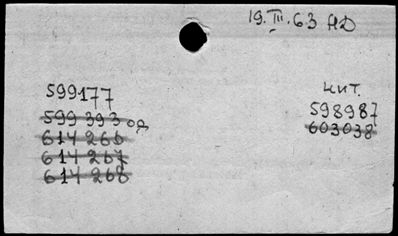 19.III.63 НД
599177
599 393 од
614 266
614 267
614 268
чит.
598987
603038